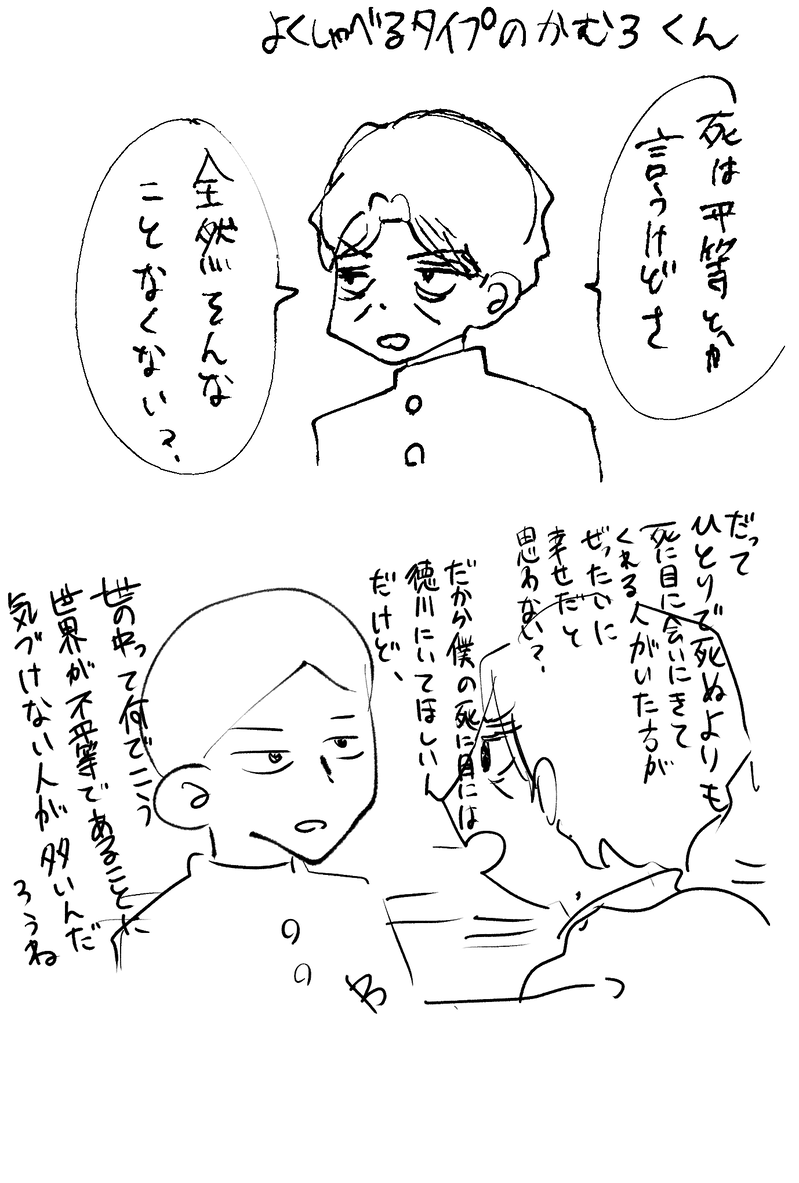 よくしゃべるタイプのかむろくん
死は平等とか
言うけどさ
全然そんな
ことなくない?
だって
ひとりで死ぬよりも
死に目に会いにきて
くれる人がいた方が
ぜったいに
幸せだと
思わない?
だから僕の死に目には
徳川にいてほしいん
だけど、
世の中って何でこう
世界が不平等であることに
気づけない人が多いんだ
ろうね